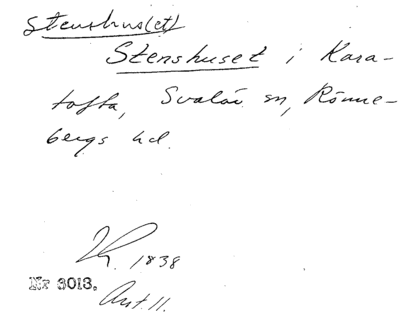 Stenshus(et)
Stenshuset i Kara-
tofta, Svalöv sn, Rönne-
bergs hd.
1838
Nr 3013.
Ant. 11.